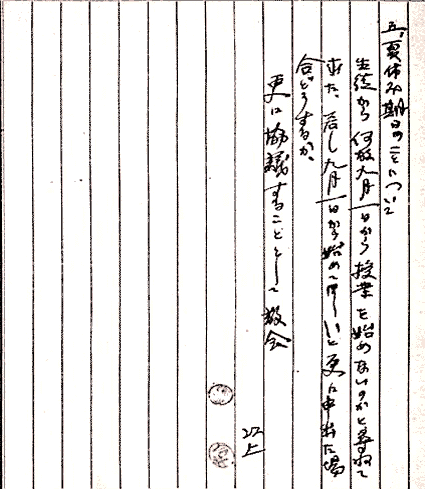 五、夏休み期日のことについて
生徒から何故九月一日から授業を始めないのかと尋ねて
来た、若し九月一日から始めて欲しいと更に申出た場
合どうするか、
更に協議することとして散会
以上